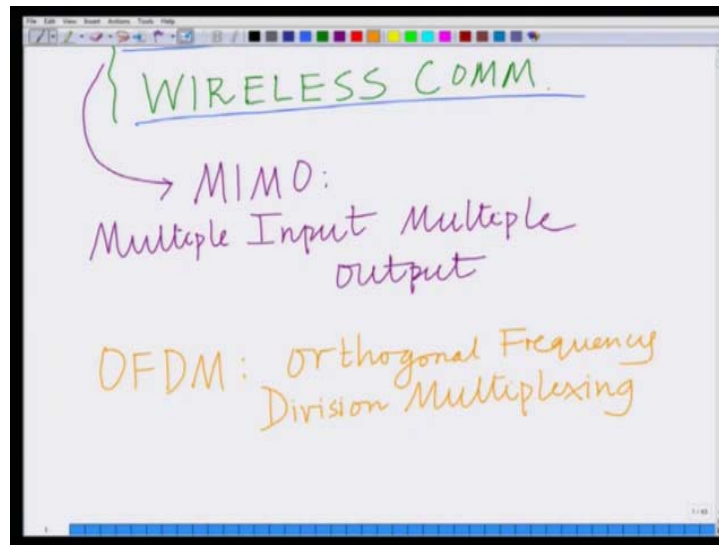 File Edit View Insert Actions Tools Help
WIRELESS COMM.
MIMO:
Multiple Input Multiple
output
OFDM: Orthogonal Frequency
Division Multiplexing